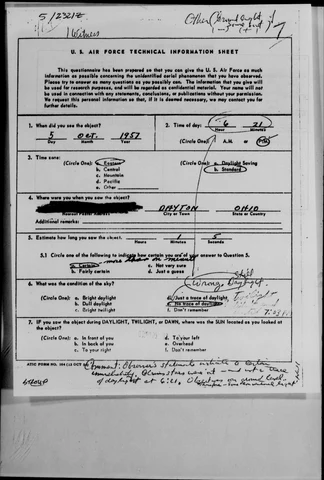 5/2321Z
Witness
U. S. AIR FORCE TECHNICAL INFORMATION SHEET
This questionnaire has been prepared so that you can give the U. S. Air Force as much
information as possible concerning the unidentified aerial phenomenon that you have observed.
Please try to answer as many of the questions as you possibly can. The information that you give will
be used for research purposes, and will be regarded as confidential material. Your name will not
be used in connection with any statements, conclusions, or publications without your permission.
We request this personal information so that, if it is deemed necessary, we may contact you for
further details.
1. When did you see the object?
5 Oct. 1957
Day Month Year
2. Time of day: 6 21
Hour Minutes
(Circle One): A.M. or P.M.
3. Time zone:
(Circle One): a. Eastern
b. Central
c. Mountain
d. Pacific
e. Other
(Circle One): a. Daylight Saving
b. Standard
4. Where were you when you saw the object?
DAYTON OHIO
Nearest Postal Address City or Town State or Country
Additional remarks:
5. Estimate how long you saw the object. 1 5
Hours Minutes Seconds
5.1 Circle one of the following to indicate how certain you are of your answer to Question 5.
more than on minute
a. Certain c. Not very sure
b. Fairly certain d. Just a guess
6. What was the condition of the sky?
Wrong, still
Daylight.
(Circle One): a. Bright daylight d. Just a trace of daylight
b. Dull daylight e. No trace of daylight
c. Bright twilight f. Don't remember
7. IF you saw the object during DAYLIGHT, TWILIGHT, or DAWN, where was the SUN located as you looked at
the object?
(Circle One): a. In front of you d. To your left
b. In back of you e. Overhead
c. To your right f. Don't remember
ATIC FORM NO. 164 (13 OCT
Comment: Observer's statements indicate a certain
unreliability. Claims stars were out - and not a trace
of daylight at 6:21.